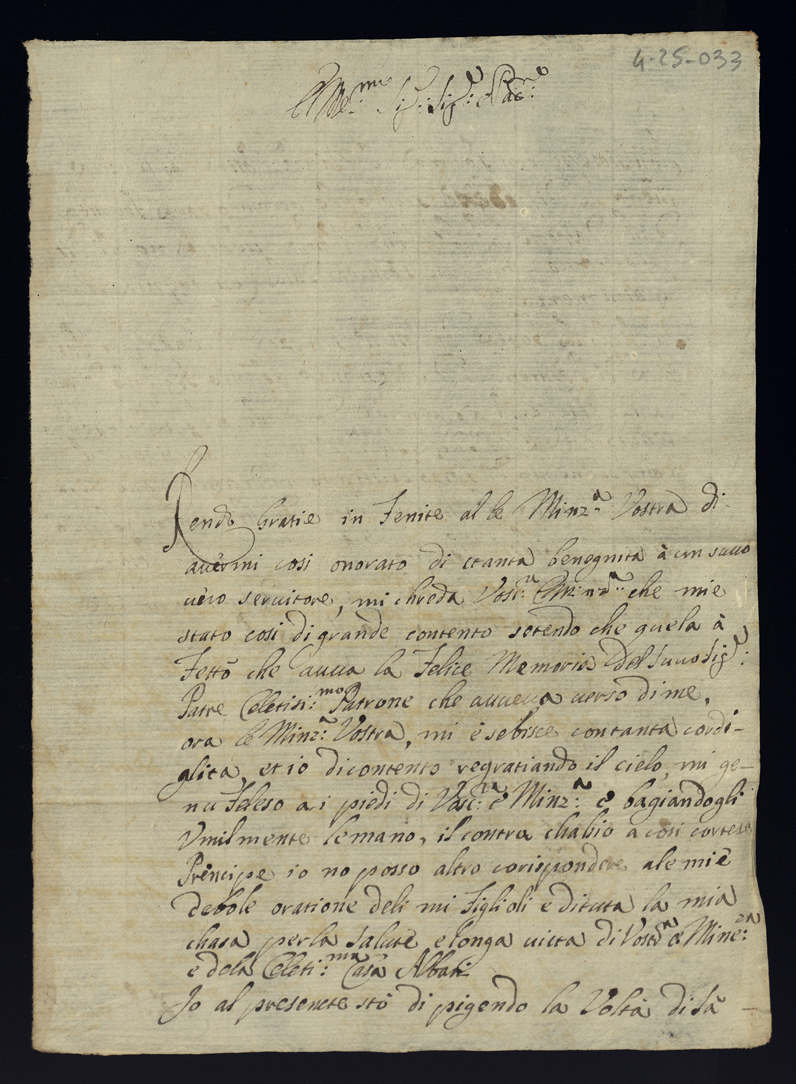 4-25-033
Em.mo Sig.: Sig.e Pa:ne
Rendo Gratie in Fenite al e Minz.a Vostra di
avermi cosi onorato di ctanta benegnita à un suvo
vero servitore, mi chreda Vost.a Eminz.a che mie
stato cosi di grande contento sotendo che quela à
Fettò che avvea la Felice Memoria del Suvo Sig.e
Patre Celetisi:mo Patrone che avveva verso dime,
ora e Minz.a Vostra, mi è sebisce contanta cordi-
glita, et io dicontento regratiando il cielo, mi ge-
nu Feleso a i piedi di Vosc.ta e Minz.a e bagiandogli
Vmilmente lemano, il contra chabio a cosi cortese
Principe io no posso altro corispondere ale miè
debole oratione deli mi Figlioli e dituta la mia
chasa per la salute e longa victa di Vost.a e Minz.a
e dela Celeti:ma Casa Albati
Io al presencte stò di pigendo la Volta di Sà